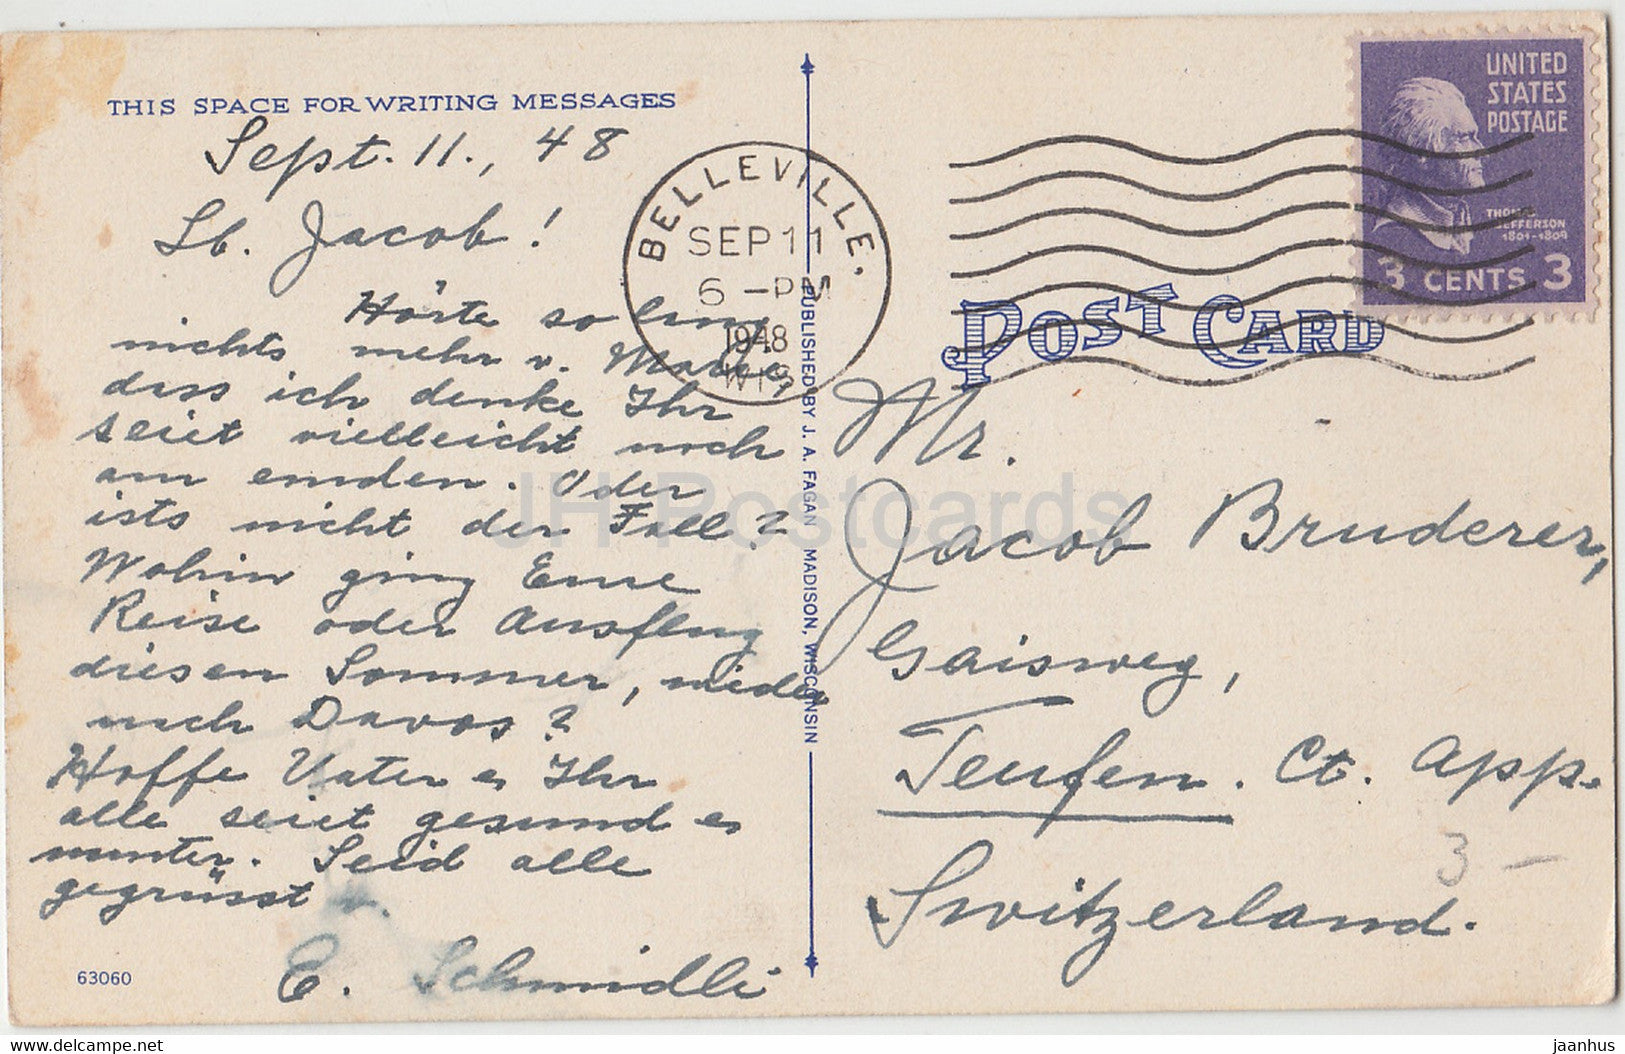 THIS SPACE FOR WRITING MESSAGES
Sept. 11., 48
Lb. Jacob!
Hörte so lang
nichts mehr v.
dass ich denke Ihr
seiet vielleicht noch
am emden. Oder
ists nicht der Fall?
Wohin ging Eure
Reise oder Ausflug
diesen Sommer, wieder
nach Davos?
Hoffe Vater Ihr
alle seiet gesund
munter. Seid alle
gegrüsst v.
E. Schmidli
63060
BELLEVILLE,
SEP 11
6 - PM
1948
WIS
PUBLISHED BY J. A. FAGAN MADISON, WISCONSIN
UNITED
STATES
POSTAGE
THOMAS
JEFFERSON
1801-1809
3 CENTS 3
POST CARD
Mr.
Jacob Bruderer,
Gaisweg,
Teufen. Ct. App.
Switzerland.
3 —
JH Postcards
www.delcampe.net
jaanhus